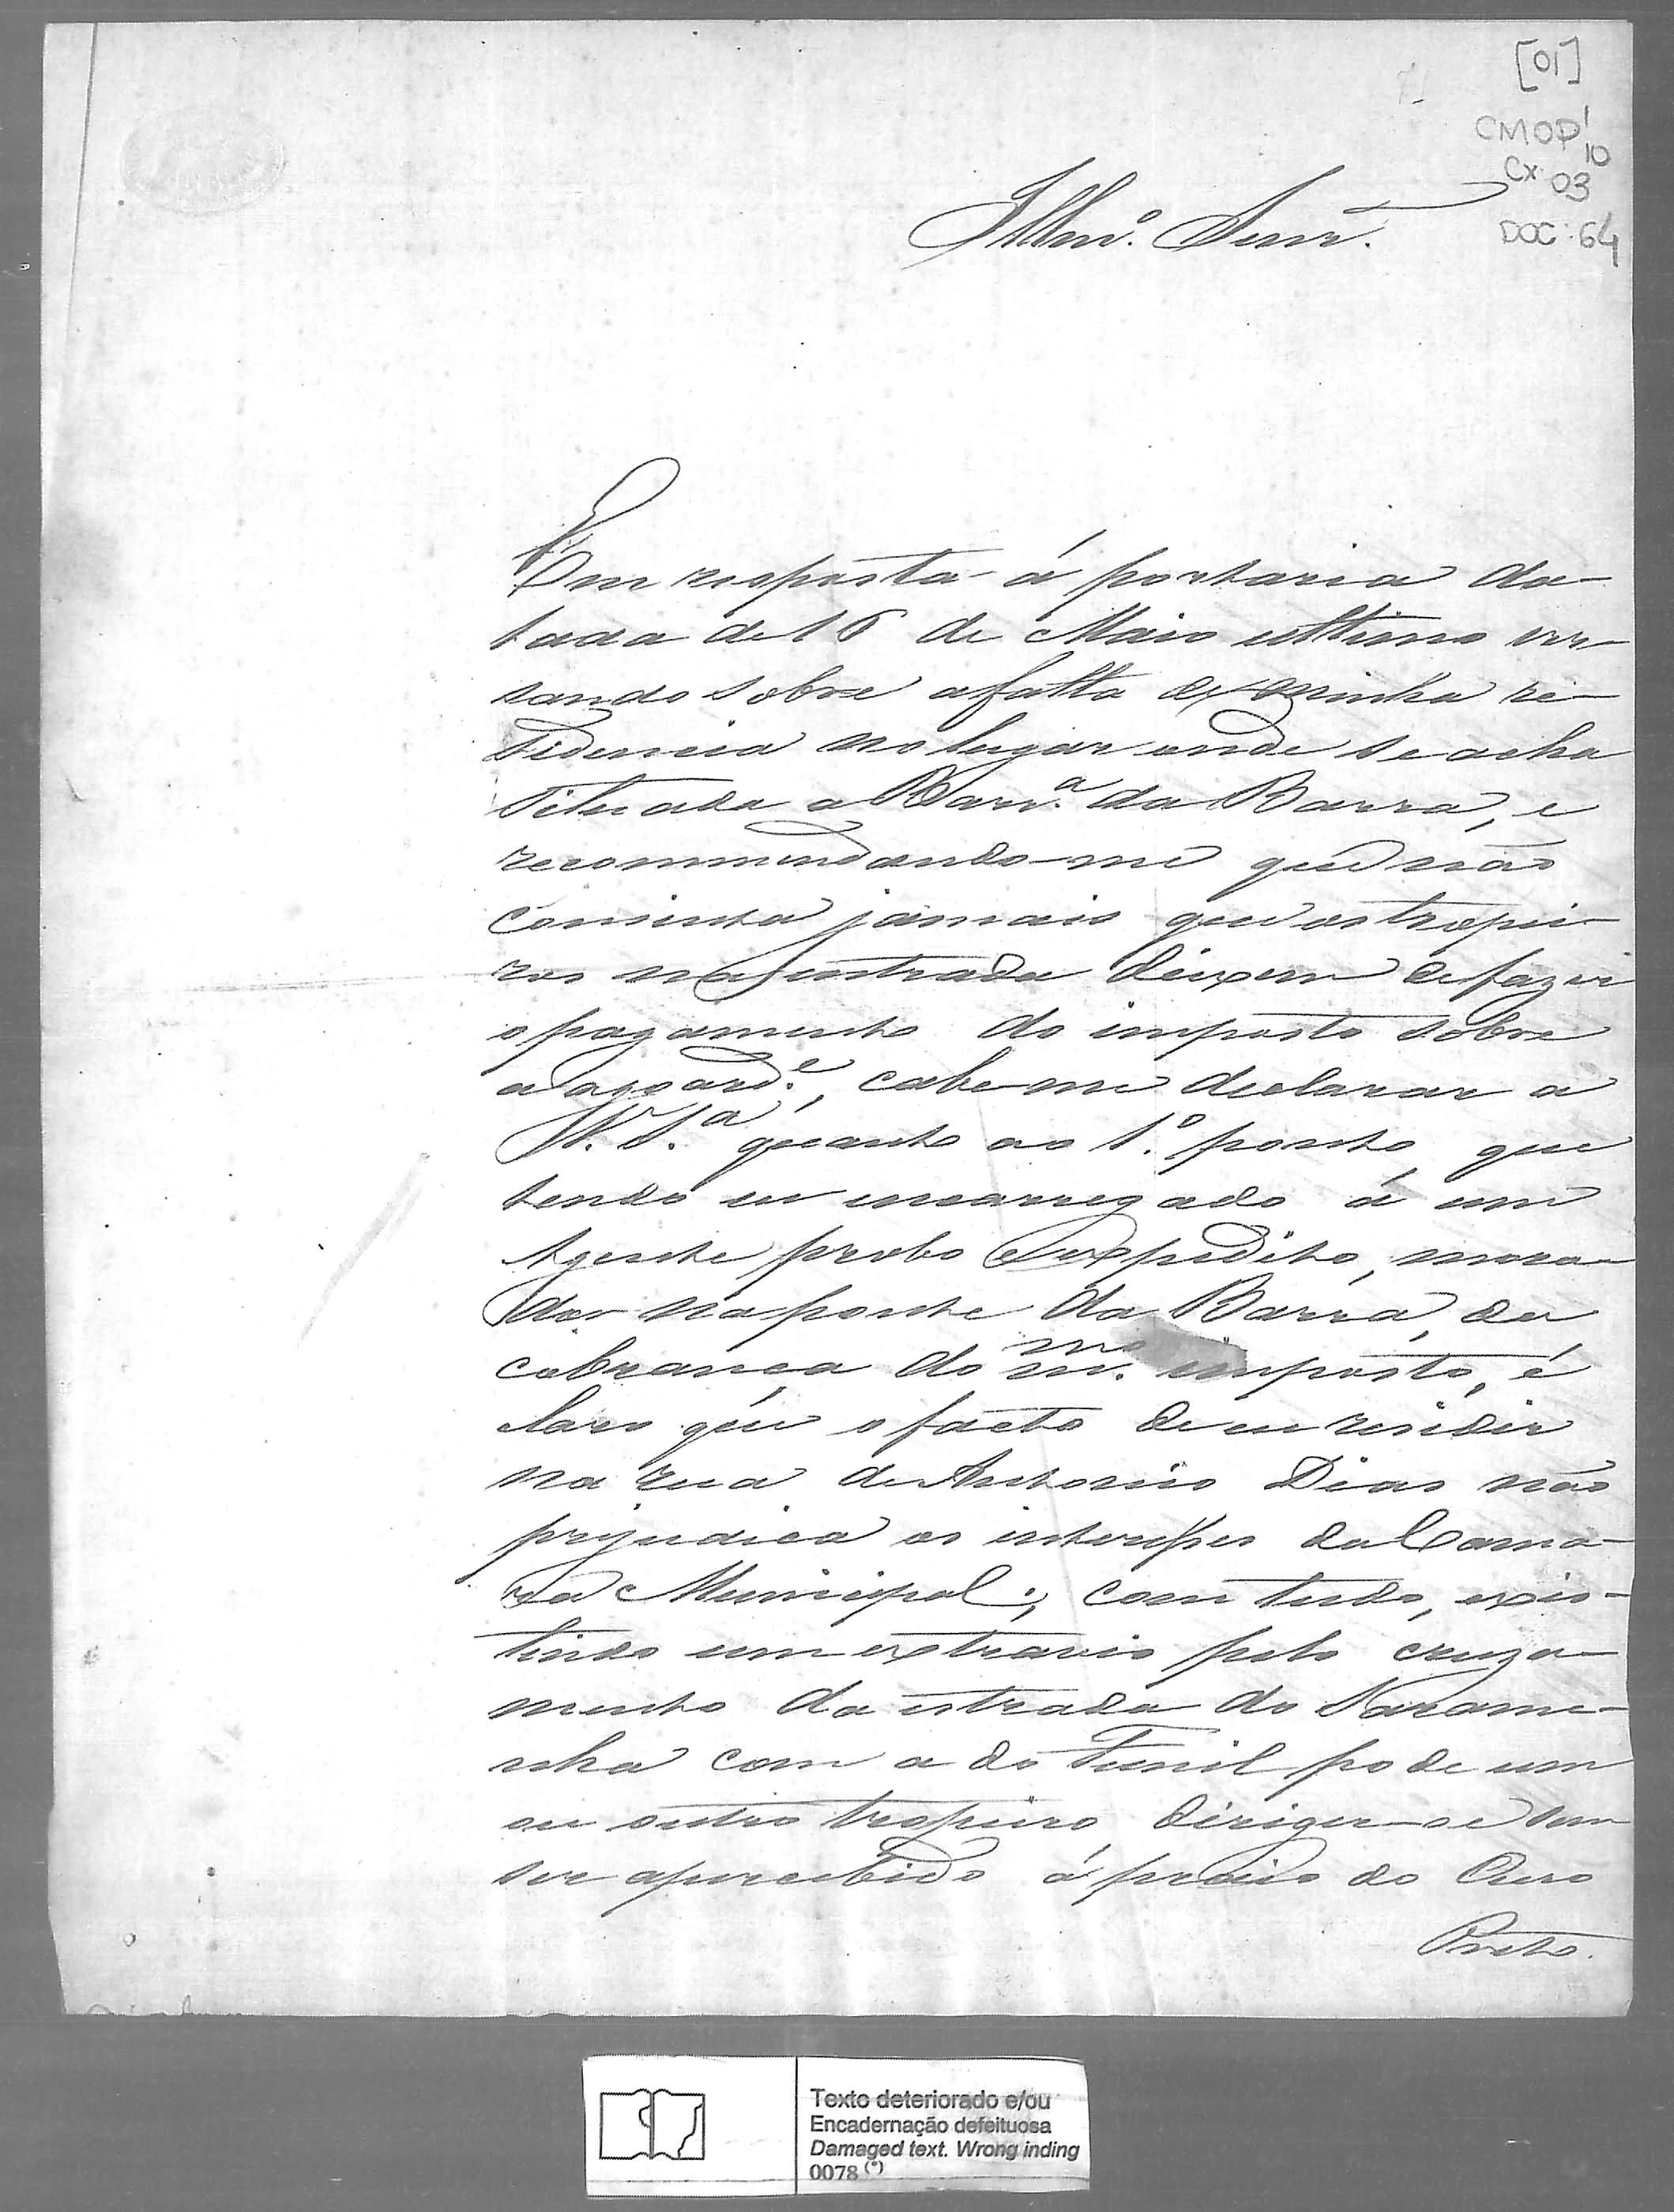 [01]
CMOP 1/10
CX: 03
DOC: 64
Illmo. Senr.
Em resposta á portaria da-
tada de 16 de Maio ultimo ver-
sando sobre a falta de minha re-
sidencia no lugar onde se acha
situada a Barr.a da Barra, e
recommendando-me que não
consinta jamais que os tropei-
ros na entrada deixem de fazer
o pagamento do imposto sobre
a agoard.e, cabe-me declarar a
V. S.a quanto ao 1.o ponto que
tendo eu encarregado á um
Agente probo e expedito, mora-
dor na ponte da Barra, da
cobrança do m.mo imposto, é
claro que o facto de eu residir
na rua de Antonio Dias não
prejudica os interesses da Cama-
ra Municipal; com tudo, exis-
tindo um extravio pelo cruza-
mento da estrada do Sarame-
nha com a do Funil pode um
ou outro tropeiro dirigir-se sem
ser apercebido á praia do Ouro
Preto.
Texto deteriorado e/ou
Encadernação defeituosa
Damaged text. Wrong inding
0078 (*)